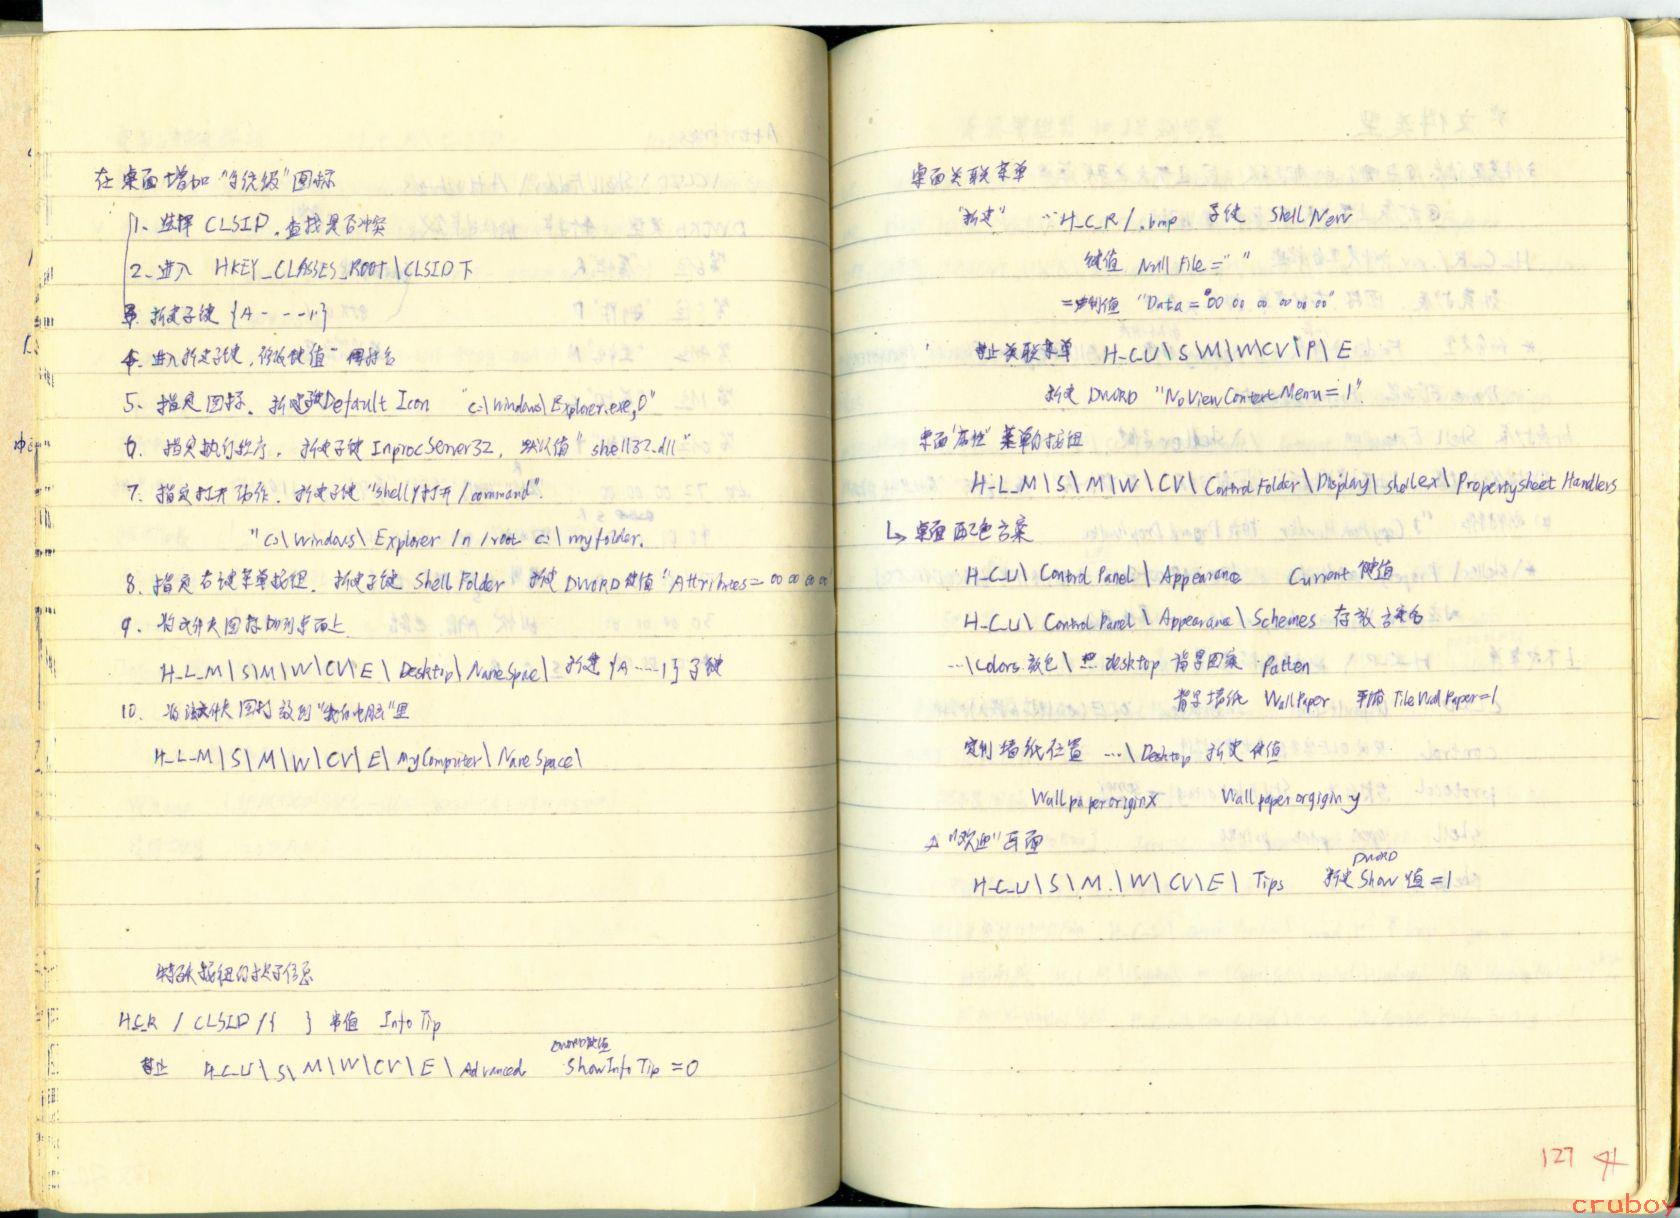 在桌面增加"系统级"图标
1、选择 CLSID,查找是否冲突
2、进入 HKEY_CLASSES_ROOT\CLSID下
3、新建子键 {A----1}
4、进入新建子键,修改键值" 图标名
5、指定图标、新建子键Default Icon "c:\windows\Explorer.exe,0"
6、指定执行程序、新建子键 InprocServer32, 默认值"shell32.dll"
7、指定打开动作、新建子键"shell\打开/command".
"c:\windows\Explorer /n /root c:\myfolder.
8、指定右键菜单按钮、新建子键 ShellFolder 新建 DWORD键值"Attributes=00 00 00 00"
9、将文件夹图标加到桌面上
H_L_M\S\M\W\CV\E\Desktop\NameSpae\ 新建 {A----1}子键
10、将该文件夹图标放到"我的电脑"里
H_L_M\S\M\W\CV\E\MyComputer\NameSpace\
特殊按钮的提示信息
H_C_R / CLSID /{ } 串值 InfoTip
禁止 H_C_U\S\M\W\CV\E\Advanced ShowInfoTip =0
DWORD键值
中
桌面关联菜单
"新建" …H_C_R/.bmp 子键 ShellNew
键值 Null File=" "
二进制值 "Data=00 00 00 00 00 00"
禁止关联菜单 H_C_U\S\M\W\CV\P\E
新建 DWORD "NoViewContextMenu=1".
桌面"属性"菜单的按钮
H_L_M\S\M\W\CV\ControlFolder\Display\shellex\PropertysheetHandlers
↳ 桌面配色方案
H_C_U\ Control Panel\ Appearance Current 键值
H_C_U\ Control Panel\ Appearance\Schemes 存放方案名
…\Colors 颜色\ desktop 背景图案 Patten
背景墙纸 WallPaper 平铺 TileWallPaper=1
定制墙纸位置 …\Desktop 新建 键值
WallpaperoriginX Wallpaperorgiginy
"欢迎"画面
H_C_U\S\M\W\CV\E\ Tips 新建 Show 值=1
DWORD
127
cruboy